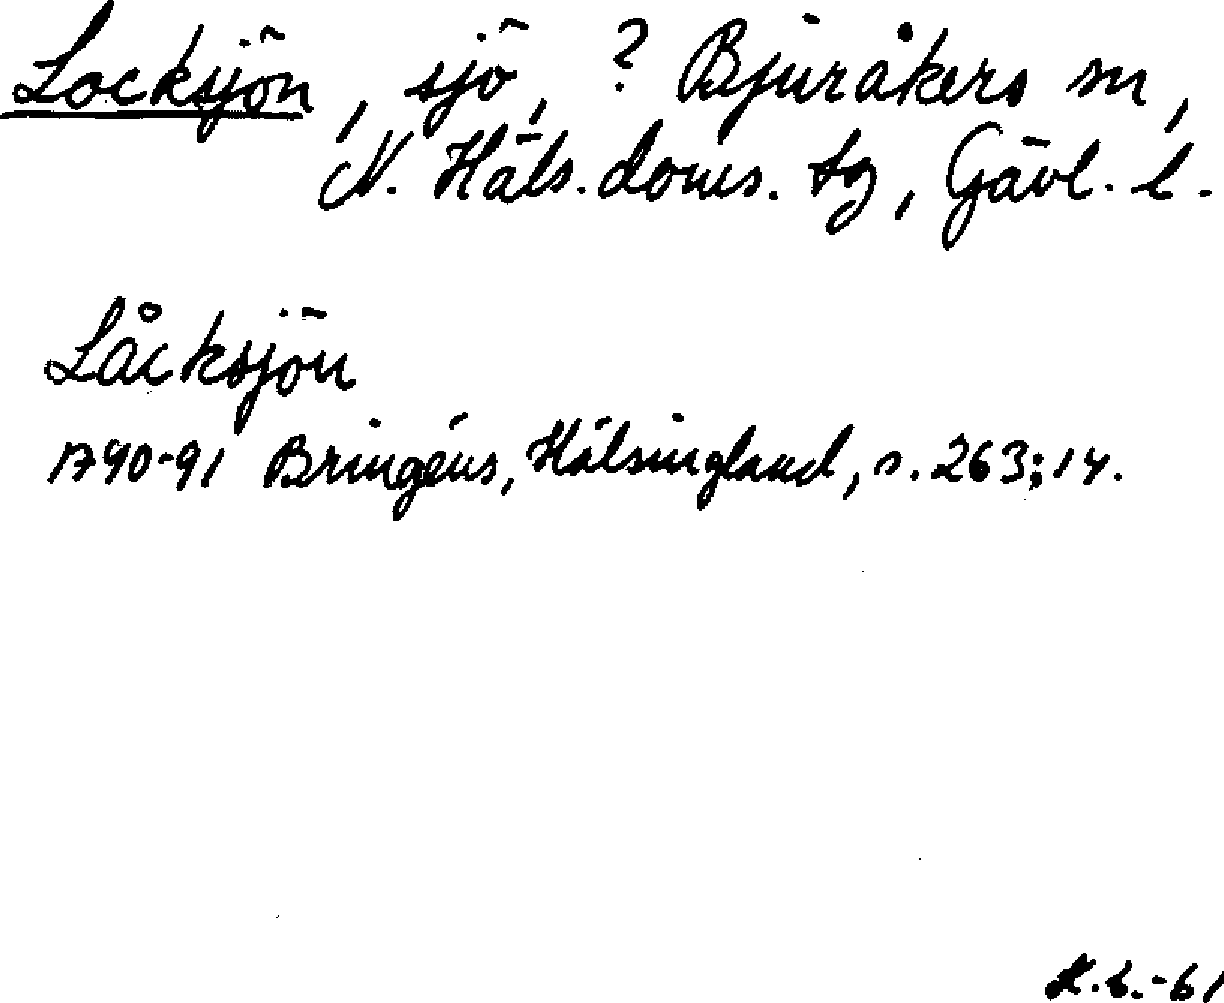 Locksjön, sjö, ? Bjuråkers sn,
N. Häls. doms. tg, Gävl. l.
Låcksjön
1790-91 Bringéus, Hälsingland, s. 263; 14.
-61